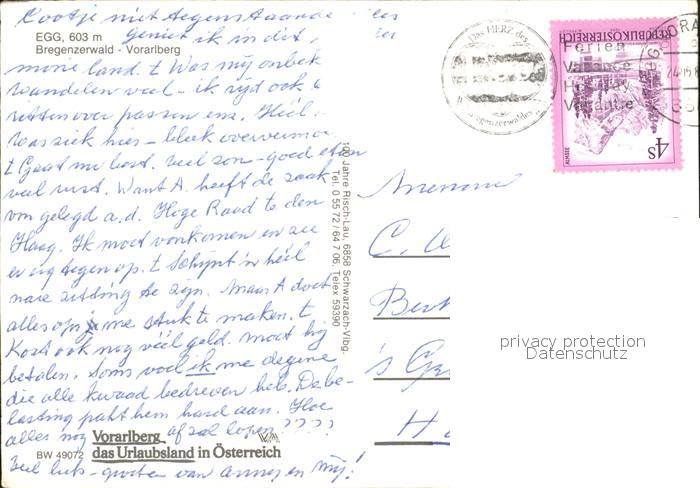 Cootje niet tegenstaande
geniet ik in dit
EGG, 603 m
Bregenzerwald - Vorarlberg
mooie land. t Was mij onbek
wandelen veel - ik rijd ook
ritten over passen enz. Heel
was ziek hier - bleek oververmoe
t Gaat nu best. Veel zon - goed eten
veel rust. Want A. heeft de zaak
voorgelegd a.d. Hoge Raad te den
Haag. Ik moet voorkomen en zie
er erg tegen op. t Schijnt 'n heel
nare zitting te zijn. Maar A doet
alles om me stuk te maken. t
Kost ook nog veel geld. moet hij
betalen. Soms voel ik me degene
die alle kwaad bedreven heb. De be-
lasting pakt hem hard aan. Hoe
alles nog af zal lopen ????
Vorarlberg
BW 49072 das Urlaubsland in Österreich
Veel liefs - groeten van
100 Jahre Risch-Lau, 6858 Schwarzach-Vlbg.
Tel. 0 55 72/64 7 06, Telex 59390
Das HERZ des
Bregenzerwaldes
Ferien
Vacance
Holiday
Vakantie
REPUBLIK ÖSTERREICH
4S
ALMSEE
Mevrouw
privacy protection
Datenschutz